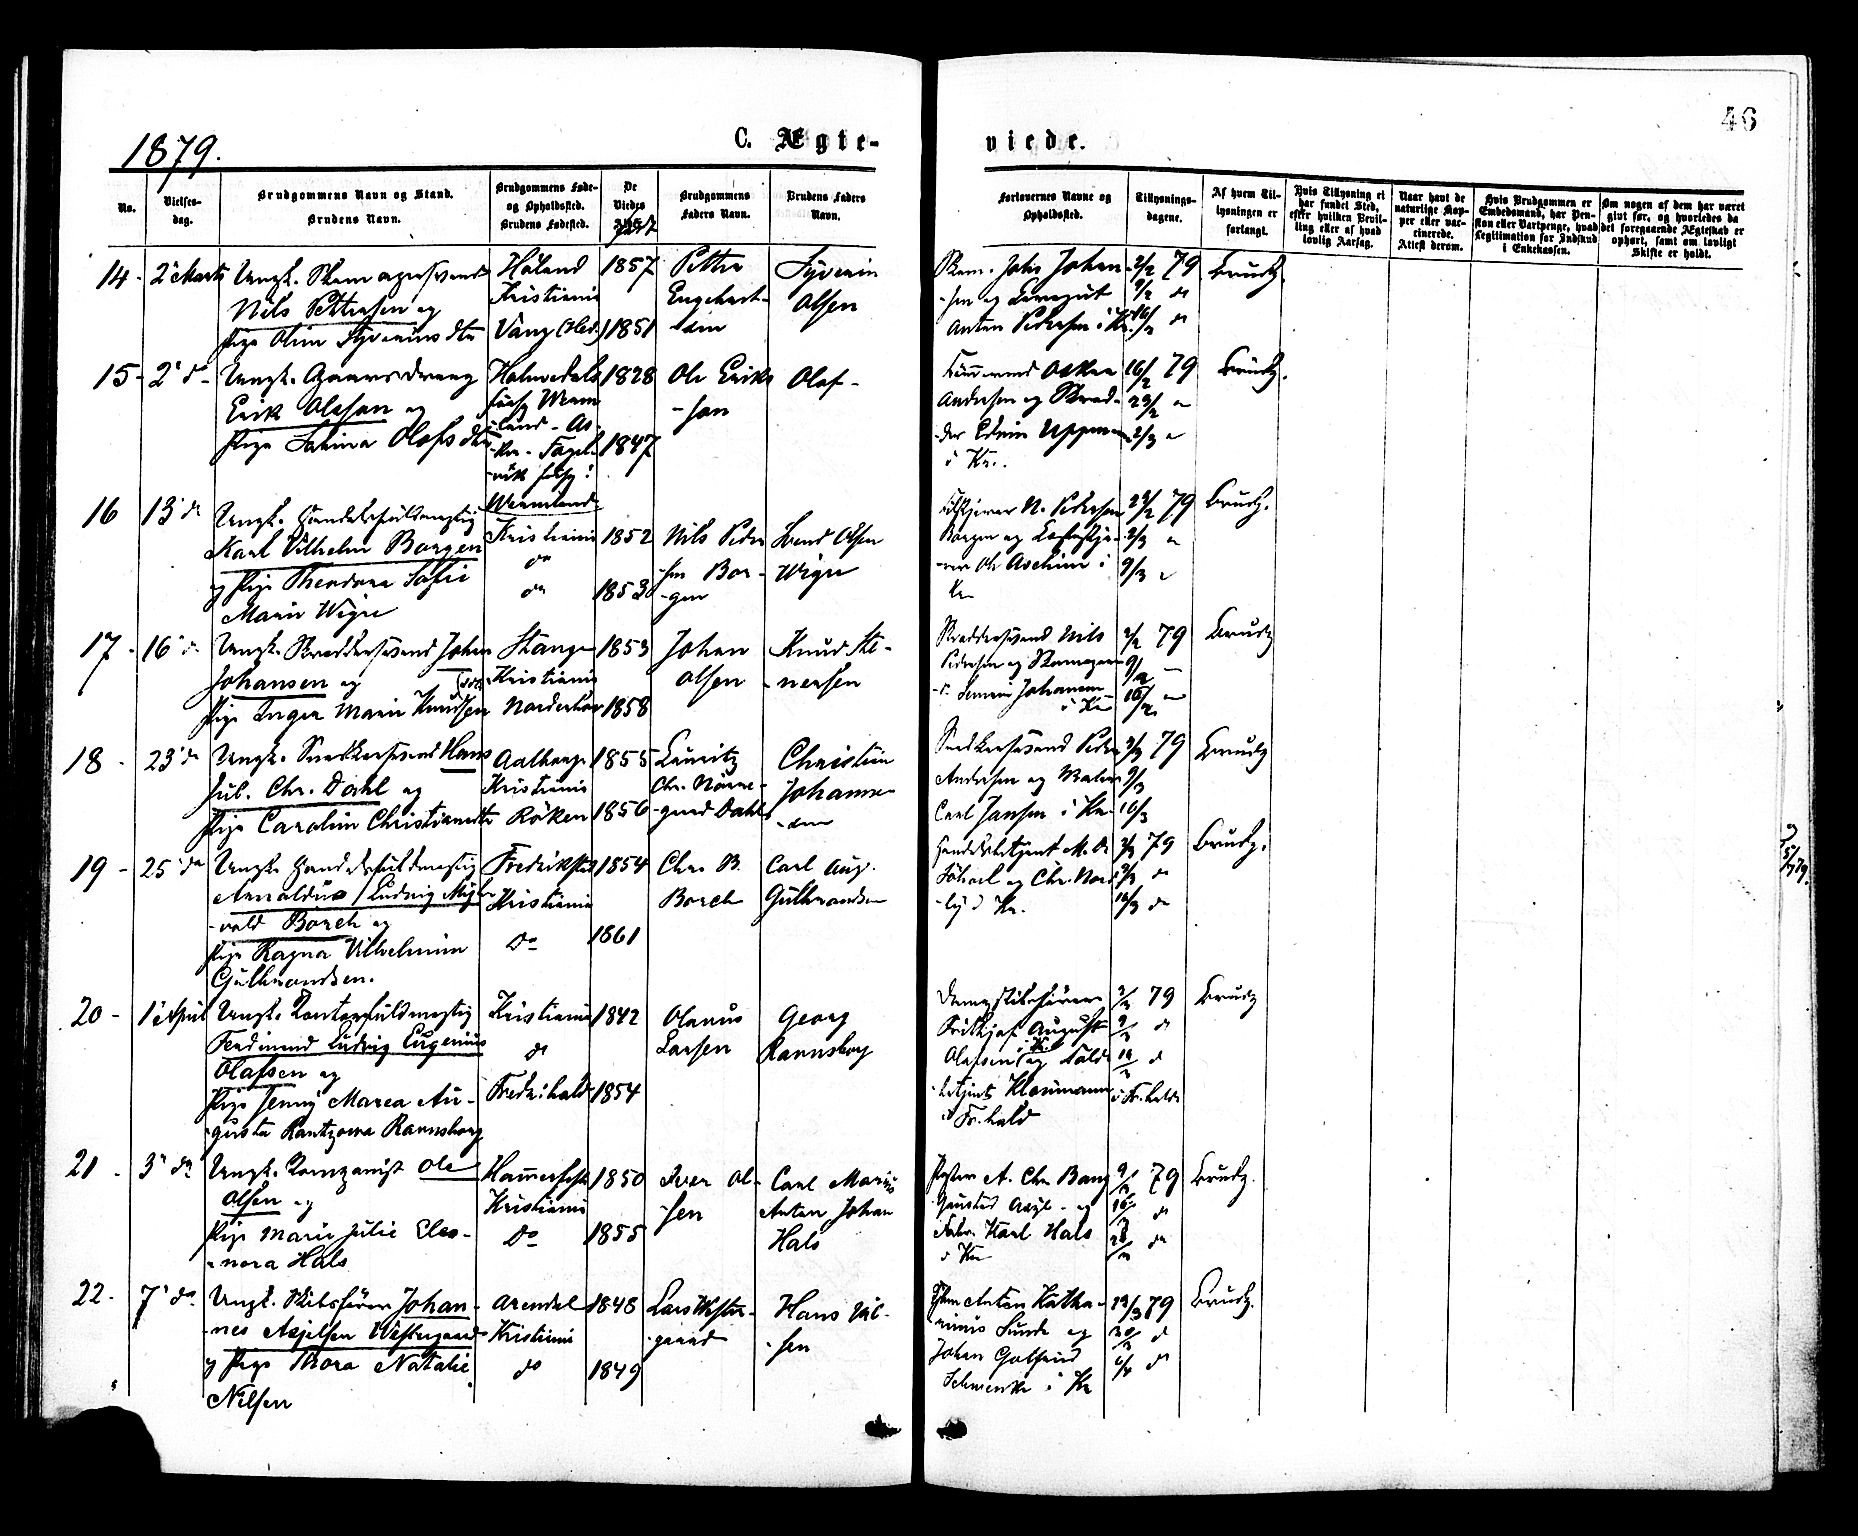 1879.
C. Ægte-
viede.
46
No.
Vielses-
dag.
Brudgommens Navn og Stand.
Brudens Navn.
Brudgommens Føde-
og Opholdssted.
Brudens Fødested.
De
Viedes
Brudgommens
Faders Navn.
Brudens Faders
Navn.
Forlovernes Navne og
Opholdssted.
Tillysnings-
dagene.
Af hvem Til-
lysningen er
forlangt.
Hvis Tillysning ei
har fundet Sted,
efter hvilken Bevil-
ling eller af hvad
lovlig Aarsag.
Naar havt de
naturlige Kop-
per eller vac-
cinerede.
Attest derom.
Hvis Brudgommen er
Embedsmand, har Pen-
sion eller Vartpenge, hvad
Legitimation for Indskud
i Enkekassen.
Om nogen af dem har været
gift før, og hvorledes da
det foregaaende Ægteskab er
ophørt, samt om lovligt
Skifte er holdt.
14- 2' Marts Ungk. Skomagersvend
Nils Pettersen og
Pige Oline Syverins dtr
Høland
Kristiania
Vang (Hed.)
1857
1851
Petter
Engebret-
sen
Syverin
Olsen
Skom. Johs Johan-
sen og
Anton Pedersen i Kr.
2/2 79
9/2 do
16/2 do
Brudg.
15- 2' do Ungk. Gaardsdreng
Erik Olsson og
Pige Sabina Olofs dtr
1828
1847
Ole Eriks
-son
Olof -
Oskar
Andersen og Skræd-
der Edvin
i Kr.
16/2 79
23/2
2/3
Brudg.
16 13' do Ungk. Handelsfuldmægtig
Karl Vilhelm Borgen
og Pige Theodora Sofie
Marie Wigre
Kristiania
do
do
1852
1853
Nils Peder
sen Bor-
gen
Svend Olsen
Wigre
N. Pedersen
Borgen og
Ole i
Kr
23/2 79
2/3
9/3
Brudg.
17- 16' do Ungk. Skræddersvend Johan
Johansen og
Pige Inger Marie Knudsen
Stange
Kristiania
Norderhov
1853
1858
Johan
Olsen
Knud Ste-
nersen
Skræddersvend Nils
Pedersen og Skomager
Johansen
i Kr
2/2 79
9/2
16/2
Brudg
18- 23' do Ungk. Snedkersvend Hans
Jul. Chr. Dahl og
Pige Caroline Christiansdtr
Aalborg
Kristiania
Røken
1855
1856
Lauritz
Chr. Nørre-
gaard Dahl
Christian
Johanne-
sen
Snedkersvend Peder
Andersen og Maler
Carl Jansen i Kr.
2/3 79
9/3
16/3
Brudg
19- 25' do Ungk. Handelsfuldmægtig
Arnoldus Ludvig
Borch og
Pige Ragna Vilhelmine
Gulbrandsen.
Fredrikstad
Kristiania
Do
1854
1861
Chr. B.
Borch
Carl Aug.
Gulbrandsen
Handelsbetjent M. O.
og Chr. Nord
i Kr.
2/3 79
9/3 do
16/3 do
Brudg.
20- 1' April Ungk. Kontorfuldmægtig
Ferdinand Ludvig Eugenius
Olafsen og
Pige Jenny Marea Au-
gusta Rantzowa Rannsborg
Kristiania
do
Fredr:hald
1842
1854
Olaus
Larsen
Georg
Rannsborg
Dampskibsfører
Frithjof August
Olafsen i Kr. og Told-
betjent Klasimann
i Fr.hald
2/3 79
9/3 do
16/3 do
i Fr.hald
Brudg
21- 3' do Ungk. Komponist Ole
Olsen og
Pige Marie Julie Eleo-
nora Hals
Hammerfest
Kristiania
Do
1850
1855
Iver Ol-
sen
Carl Marius
Anton Johan
Hals
Pastor A. Chr. Bang
Gaustad Asyl - og
Fabr. Karl Hals
i Kr
9/3 79
16/3 do
23/3 do
Brudg.
22- 7' do Ungk. Skibsfører Johan-
nes Axelsen Westergaard
og Pige Thora Natalie
Nilsen
Arendal
Kristiania
do
1848
1849
Lars Wester-
gaard
Hans Nil-
sen
Anton Katha-
rinus Sunde og
Johan Gotfried
Schwenke i Kr
23/3 79
30/3 do
6/4 do
Brudg.